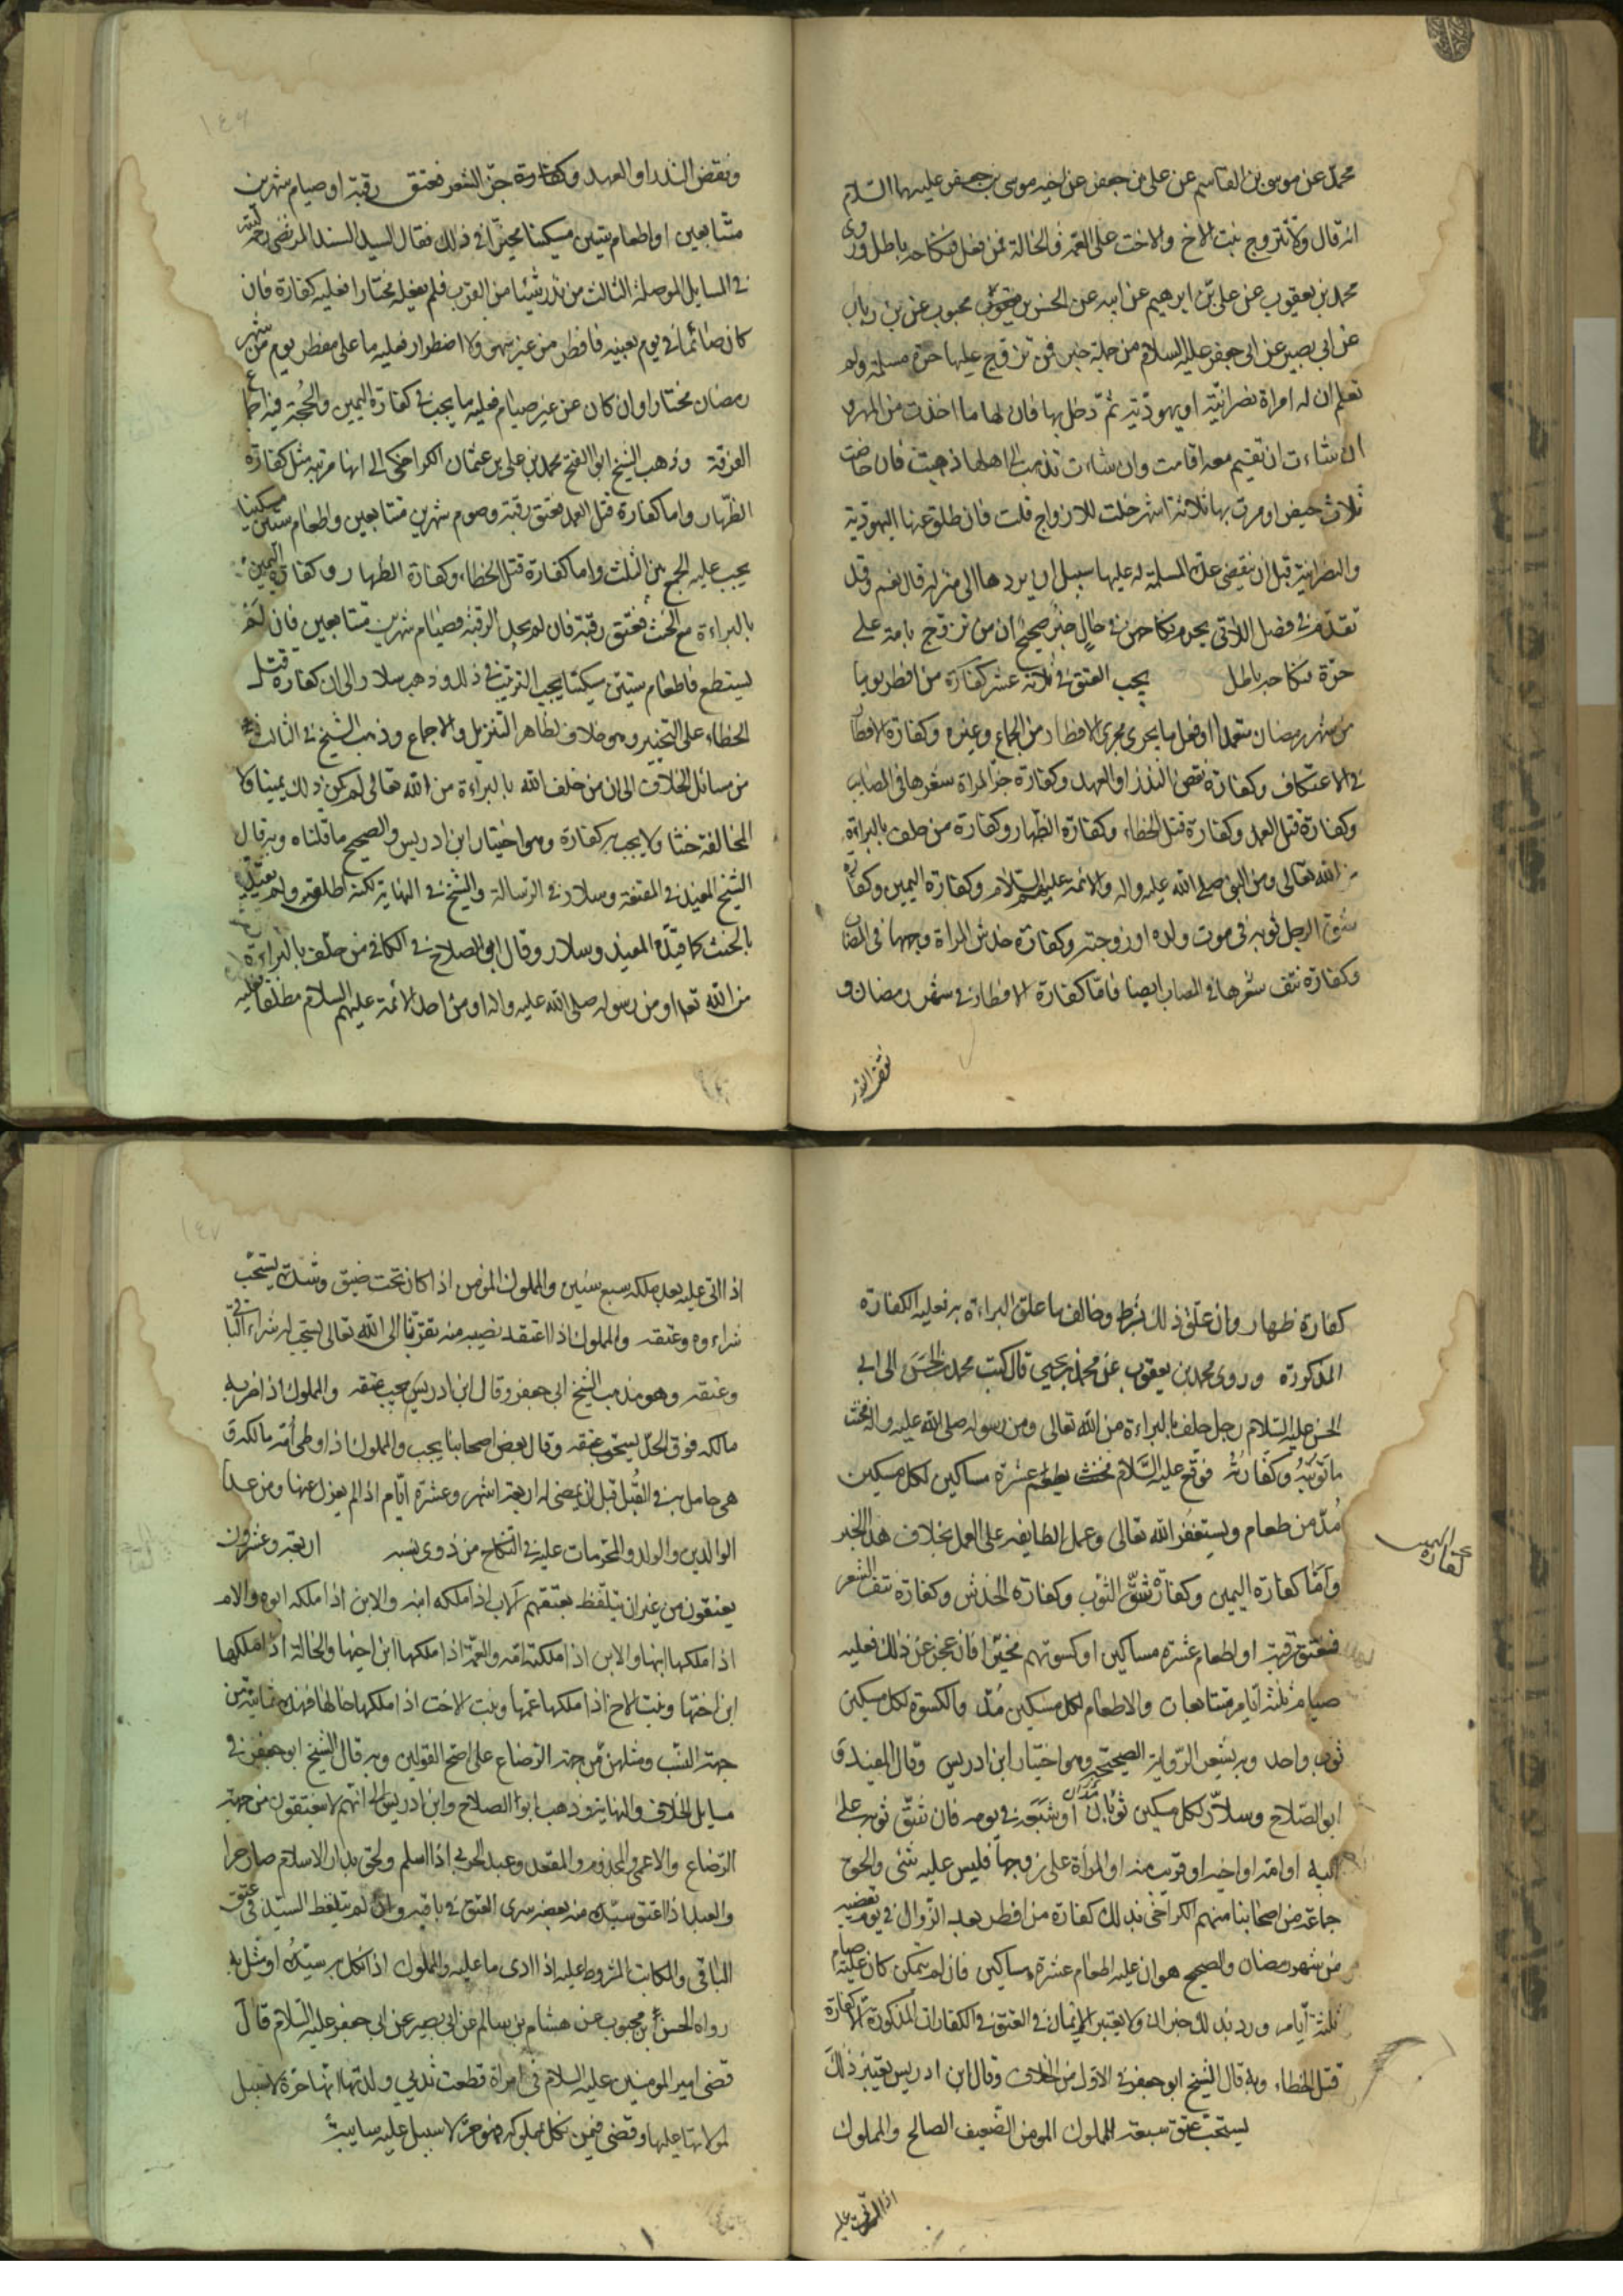 محمد عن موسى بن القاسم عن على بن جعفر عن اخيه موسى بن جعفر عليهما السلام
انه قال ولا تتزوج بنت الاخ والاخت على العمة والخالة فمن فعل فنكاحه باطل وروى
محمد بن يعقوب عن على بن ابرهيم عن ابيه عن الحسن بن محبوب عن بن رياب
عن ابى بصير عن ابى جعفر عليه السلام من جملة خبر فمن تزوج عليها حرة مسلمة ولم
تعلم ان له امراة نصرانية او يهودية ثم دخل بها فان لها ما اخذت من المهر و
ان شاءت ان تقيم معه اقامت وان شاءت تذهب الى اهلها ذهبت فان حاضت
ثلاث حيض او مرت بها ثلاثة اشهر حلت للازواج قلت فان طلق عنها اليهودية
والنصرانية قبل ان تنقضى عدة المسلمة له عليها سبيل ان يردها الى منزله قال نعم وقد
تقدم فى فصل اللاتى يحرم نكاحهن فى حال خبر صحيح ان من تزوج بامة على
حرة فنكاحه باطل يجب العتق فى ثلاثة عشر كفارة من افطر يوما
من شهر رمضان متعمدا او فعل ما يجرى مجرى الافطار من الجماع وغيره وكفارة الافطار
فى الاعتكاف وكفارة نقض النذر او العهد وكفارة جز المراة شعرها فى المصاب
وكفارة قتل العمد وكفارة قتل الخطاء وكفارة الظهار وكفارة من حلف بالبراءة
من الله تعالى ومن النبى صلى الله عليه واله والائمة عليهم السلام وكفارة اليمين وكفارة
شق الرجل ثوبه فى موت ولده او زوجته وكفارة خدش المراة وجهها فى المصاب
وكفارة نتف شعرها فى المصاب ايضا فاما كفارة الافطار فى شهر رمضان و
نقض النذر
ونقض النذر او العهد وكفارة جز الشعر فعتق رقبة او صيام شهرين
متتابعين او اطعام ستين مسكينا مخيرا فى ذلك فقال السيد السند المرتضى رحمه الله
فى المسايل الموصلية الثالث من نذر شيئا من القرب فلم يفعله مختارا فعليه كفارة فان
كان صائما فى يوم بعينه فافطر من غير سهو ولا اضطرار فعليه ما على مفطر يوم من شهر
رمضان مختارا وان كان عن غير صيام فعليه ما يجب فى كفارة اليمين والحجة فيه اجماع
الفرقة وذهب الشيخ ابو الفتح محمد بن على بن عثمان الكراجكى الى انها مرتبة مثل كفارة
الظهار واما كفارة قتل العمد فعتق رقبة وصوم شهرين متتابعين واطعام ستين مسكينا
يجب عليه الجمع بين الثلث واما كفارة قتل الخطاء وكفارة الظهار وكفارة اليمين
بالبراءة مع الحنث فعتق رقبة فان لم يجد الرقبة فصيام شهرين متتابعين فان لم
يستطع فاطعام ستين مسكينا يجب الترتيب فى ذلك وذهب سلار الى ان كفارة قتل
الخطاء على التخيير وهو خلاف لظاهر التنزيل والاجماع وذهب الشيخ فى الثالث
من مسائل الخلاف الى ان من حلف الله بالبراءة من الله تعالى لم يكن ذلك يمينا ولا
المخالفة حنثا ولا يجب به كفارة وهو اختيار ابن ادريس والصحيح ما قلناه وبه قال
الشيخ المفيد فى المقنعة وسلار فى الرسالة والشيخ فى النهاية لكنه اطلقه ولم يقيده
بالحنث كما قيده المفيد وسلار وقال ابو الصلاح فى الكافى من حلف بالبراءة
من الله تعا او من رسوله صلى الله عليه واله او من احد الائمة عليهم السلام مطلقا فعليه
كفارة ظهار وان علق ذلك بشرط وخالف ما علق البراءة به فعليه الكفارة
المذكورة وروى محمد بن يعقوب عن محمد بن يحيى قال كتب محمد بن الحسن الى ابى
الحسن عليه السلام رجل حلف بالبراءة من الله تعالى ومن رسوله صلى الله عليه واله فحنث
ما توبته وكفارته فوقع عليه السلام يطعم عشرة مساكين لكل مسكين
مد من طعام ويستغفر الله تعالى وعمل الطايفة على العمل بخلاف هذا الخبر
كفارة اليمين
واما كفارة اليمين وكفارة شق الثوب وكفارة الخدش وكفارة نتف الشعر
فعتق رقبة او اطعام عشرة مساكين او كسوتهم مخيرا فان عجز عن ذلك فعليه
صيام ثلثة ايام متتابعات والاطعام لكل مسكين مد والكسوة لكل مسكين
ثوب واحد وبه يشعر الرواية الصحيحة وهو اختيار ابن ادريس وقال المفيد و
ابو الصلاح وسلار لكل مسكين ثوبان مدان او شبعه فى يومه فان شق ثوبه على
ابيه او امه او اخيه او قريب منه او المراة على زوجها فليس عليه شئ والحق
جماعة من اصحابنا منهم الكراجكى بذلك كفارة من افطر بعد الزوال فى يوم يقضيه
من شهر رمضان والصحيح هو ان عليه اطعام عشرة مساكين فان لم يتمكن كان عليه صيام
ثلثة ايام ورد بذلك خبران ولا يعتبر الايمان فى العتق فى الكفارات المذكورة الا كفارة
قتل الخطاء وبه قال الشيخ ابو جعفر فى الاول من الخلاف وقال ابن ادريس يعتبر ذلك
يستحب عتق سبعة المملوك المومن الضعيف الصالح والمملوك
اذا اتى عليه
اذا اتى عليه بعد ملكه سبع سنين والمملوك المؤمن اذا كان تحت ضيق وشدة يستحب
شراءوه وعتقه والمملوك اذا اعتق احد نصيبه منه تقربا الى الله تعالى يستحب له شراء الباقى
وعتقه وهو مذهب الشيخ ابى جعفر وقال ابن ادريس يجب عتقه والمملوك اذا ضربه
مالكه فوق الحد يستحب عتقه وقال بعض اصحابنا يجب والمملوك اذا وطى امه مالكه و
هى حامل به فى القبل قبل ان يمضى له اربعة اشهر وعشرة ايام اذا لم يعزل عنها ومن عدا
الوالدين والولد والمحرمات عليه فى النكاح من ذوى نسبه اربعة وعشرون
يعتقون من غير ان يتلفظ بعتقهم الاب اذا ملكه ابنه والابن اذا ملكه ابوه والام
اذا ملكها ابنها والابن اذا ملكته امه والعمة اذا ملكها ابن اخيها والخالة اذا ملكها
ابن اختها وبنت الاخ اذا ملكها عمها وبنت الاخت اذا ملكها خالها فهذه ثمانية من
جهة النسب ومثلهن من جهة الرضاع على اصح القولين وبه قال الشيخ ابو جعفر فى
مسايل الخلاف والنهاية وذهب ابو الصلاح وابن ادريس الى انهم لا ينعتقون من جهة
الرضاع والاعمى والمجذوم والمقعد وعبد الحربى اذا اسلم ولحق بدار الاسلام صار حرا
والعبد اذا اعتق سيده منه بعضه سرى العتق فى باقيه وان لم يتلفظ السيد فى عتق
الباقى والمكاتب المشروط عليه اذا ادى ما عليه والمملوك اذا نكل به سيده او مثل به
رواه الحسن بن محبوب عن هشام بن سالم عن ابى بصير عن ابى جعفر عليه السلام قال
قضى امير المومنين عليه السلام فى امراة قطعت ثدى وليدتها انها حرة لا سبيل
لمولاتها عليها وقضى فيمن نكل بمملوكه فهو حر لا سبيل عليه سايبة